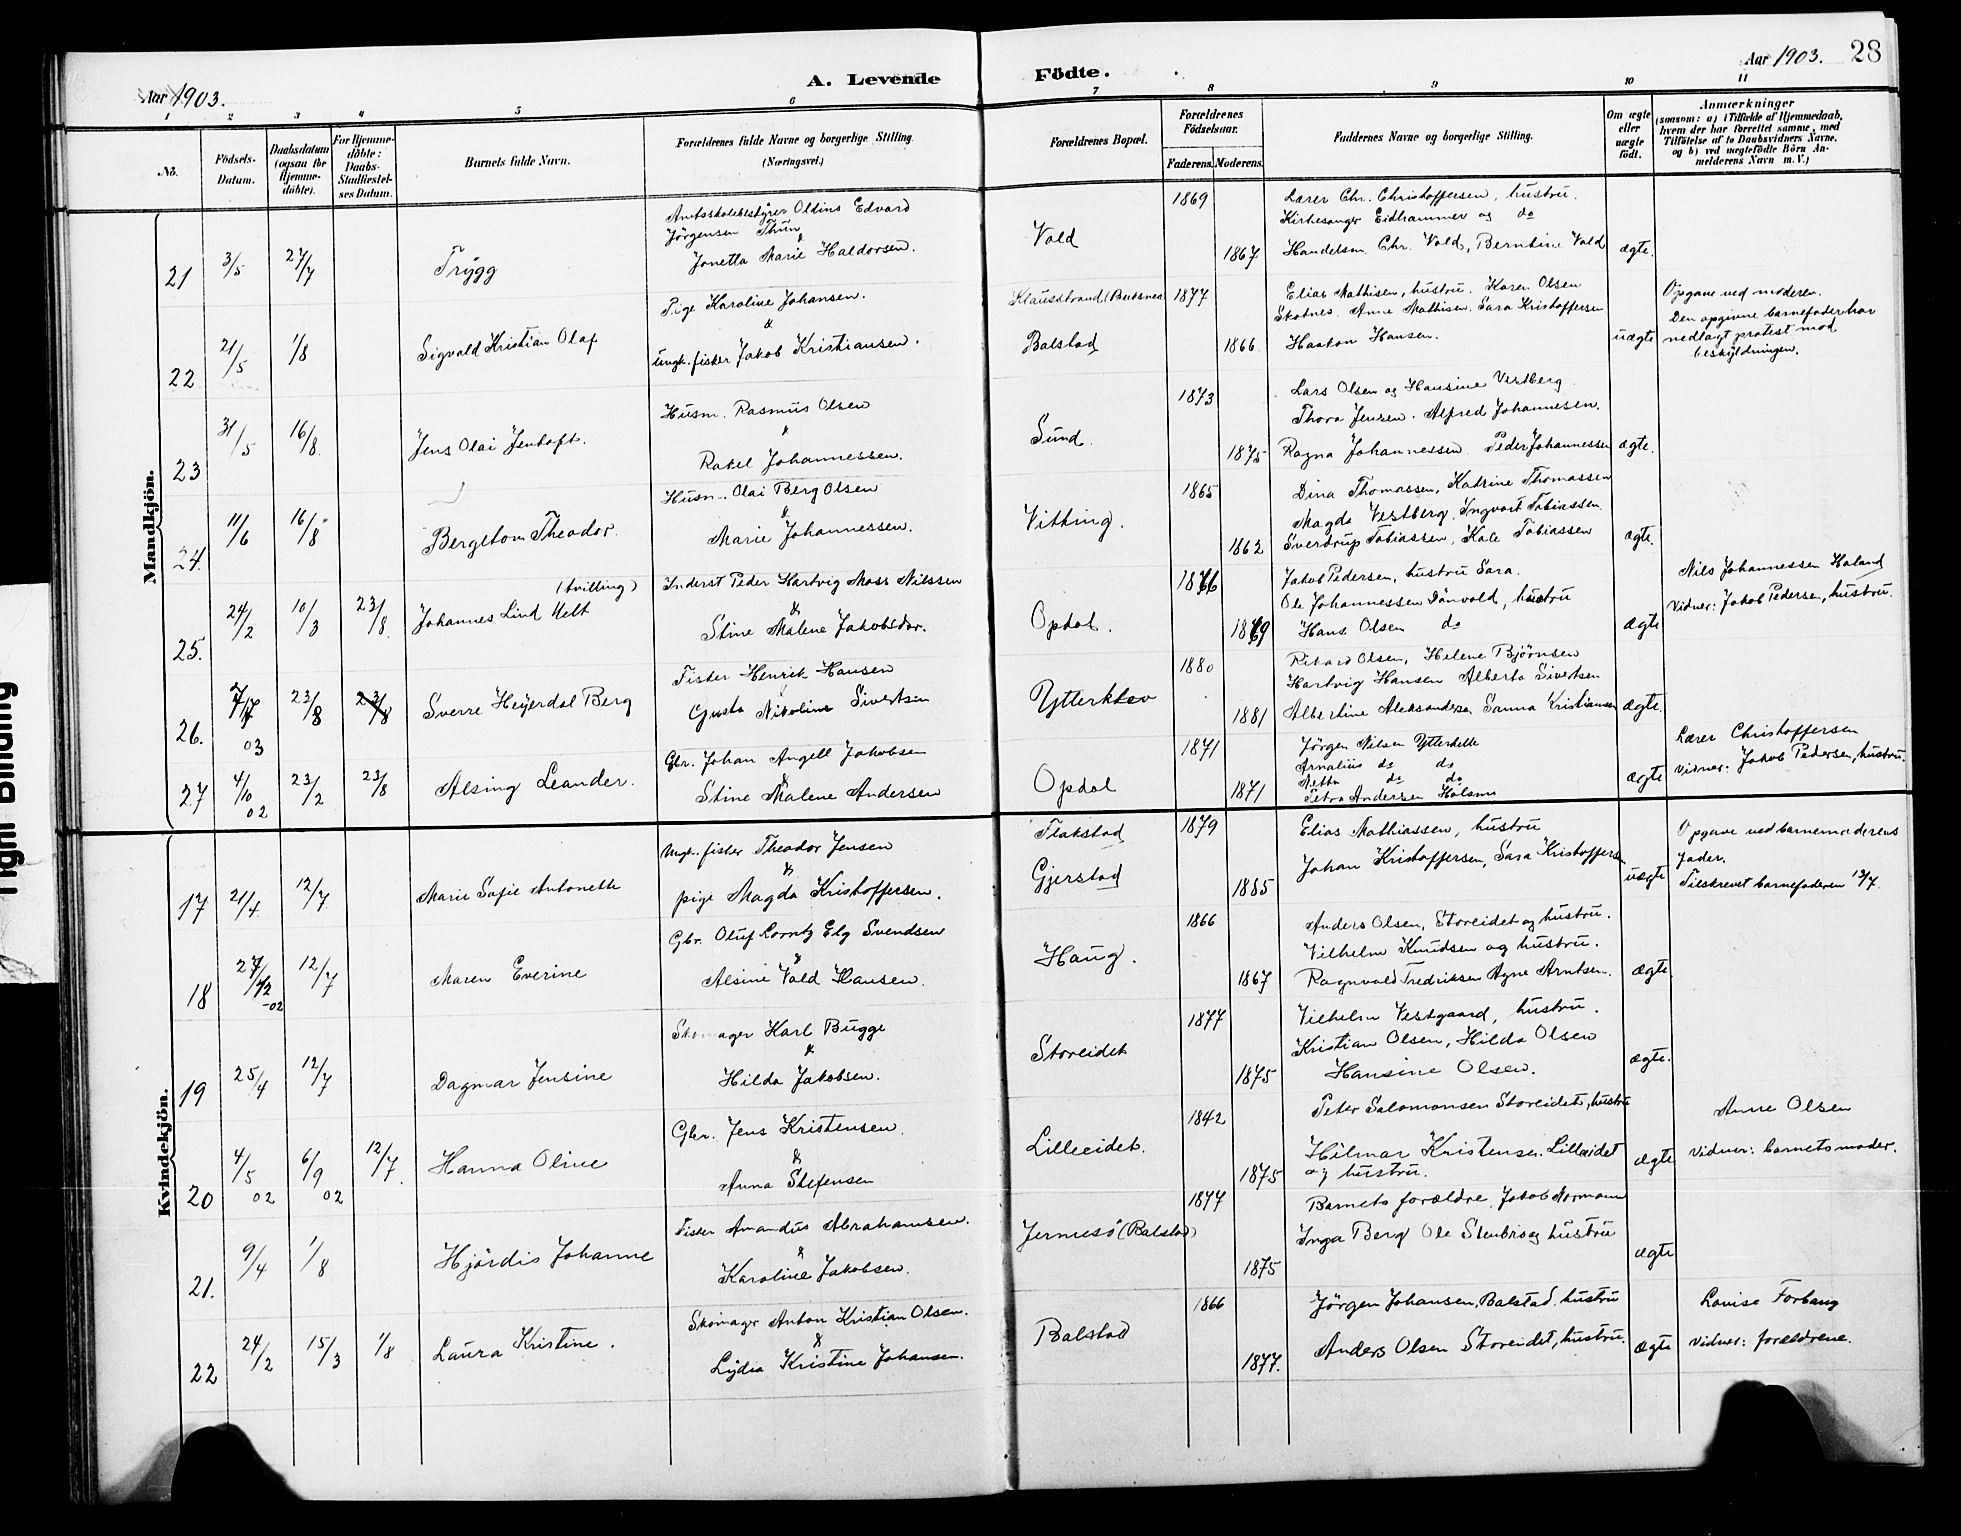 Aar 1903.
A. Levende
Födte.
Aar 1903.
28
1 2 3 4 5 6
7 8 9 10 11
No.
Födsels-Datum.
Daabsdatum (ogsaa for Hjemme-döbte).
For Hjemme-döbte: Daabs-Stadfæstel-ses Datum.
Barnets fulde Navn.
Forældrenes fulde Navne og borgerlige Stilling. (Næringsvei.)
Forældrenes Bopæl.
Forældrenes Födselsaar.
Faderens. Moderens.
Faddernes Navne og borgerlige Stilling.
Om ægte eller uægte födt.
Anmærkninger
(saasom: a) i Tilfælde af Hjemmedaab, hvem der har forrettet samme, med Tilföielse af to Daabsvidners Navne, og b) ved uægtefödte Börn An-melderens Navn m. V.)
Mandkjön.
21 3/5 27/7 Trygg
Amtsskolebestyrer Oldins Edvard
Jörgensen Thun
&
Jonetta Marie Haldorsen.
Vold 1869 1867
Lærer Chr. Christoffersen, hustru.
Kirkesanger Eidhammer og do
Handelsm. Chr. Vold, Berntine Vold
ægte.
22 21/5 1/8 Sigvald Kristian Olaf
Pige Karoline Johansen.
&
Ungk. fisker Jakob Kristiansen.
Klausstrand (Buksnes)
Balstad 1877 1866
Elias Mathisen, hustru. Karen Olsen
Skotnes. Anne Mathisen. Sara Kristoffersen
Haakon Hansen.
uægte
Opgave ved moderen.
Den opgivne barnefader har
nedlagt protest mod
beskyldningen.
23 31/5 16/8. Jens Olai Jentoft.
Husm. Rasmus Olsen
&
Rakel Johannessen.
Sund. 1873 1875
Lars Olsen og Hansine Vestberg
Thora Jensen. Alfred Johannesen.
Ragna Johannessen Peder Johannessen
ægte.
24. 11/6 16/8 Bergetom Theodor.
Husm. Olai Berg Olsen
&
Marie Johannessen.
Vitting. 1865 1862
Dina Thomassen, Katrine Thomassen
Magda Vestberg. Ingvart Tobiassen.
Sverdrup Tobiassen, Kale Tobiassen
ægte.
25. 24/2 10/3 23/8. Johannes Lind Melt
(tvilling)
Inderst Peder Hartvig Moss Nilssen
&
Stine Malene Jakobsdor.
Opdal. 1876 1879
Jakob Pedersen, hustru Sara.
Ole Johannessen Dönvold, hustru
Hans Olsen do
ægte
Nils Johannessen Haland
Vidner: Jakob Pedersen, hustru.
26. 7/7 03 23/8 23/8 Sverre Heyerdal Berg
Fisker Henrik Hansen
Gusta Nikoline Sivertsen
Ytterklev 1880 1881
Rikard Olsen, Helene Bjørnsen
Hartvig Hansen Alberta Sivertsen
Albertine Aleksandersen Sanna Kristiansen
ægte.
27 4/10 02 23/2 23/8 Alsing Leander.
Gbr. Johan Angell Jakobsen
&
Stine Malene Andersen
Opdal 1871 1871
Jörgen Nilsen Ytterkelle
Arnalius do do
Netta do do
Petra Andersen Holsmo
ægte
Lærer Christoffersen
Vidner: Jakob Pedersen, hustru.
Kvindekjön.
17 21/4 12/7. Marie Sofie Antonette
Ungk. fisker Theodor Jensen
&
pige Magda Kristoffersen.
Flakstad
Gjerstad 1879 1885
Elias Mathiassen, hustru
Johan Kristoffersen, Sara Kristoffersen
uægte
Opgave ved barnemoderens
fader.
Tilskrevet barnefaderen 12/7.
18 27/12 -02 12/7 Maren Everine
Gbr. Oluf Lorntz Elg Svendsen
&
Alsine Vold Hansen.
Haug. 1866 1867
Anders Olsen, Storeidet og hustru.
Vilhelm Knudsen og hustru.
Ragnvald Fredriksen Agne Arntsen.
ægte
19 25/4 12/7 Dagmar Jensine
Skomager Karl Bugge
&
Hilda Jakobsen.
Storeidet 1877 1875
Vilhelm Vestgaard, hustru.
Kristian Olsen, Hilda Olsen
Hansine Olsen.
ægte.
20 4/5 02 6/9 02 12/7. Hanna Oline
Gbr. Jens Kristensen.
&
Anna Stefensen
Lilleeidet. 1842 1875
Peter Salomonsen Storeidet, hustru
Hilmar Kristensen. Lilleeidet
og hustru.
ægte
Anne Olsen
Vidner: barnets moder.
21. 9/4 1/8 Hjördis Johanne
Fisker Amandus Abrahamsen.
&
Karoline Jakobsen.
Jermesö (Balstad) 1877 1875
Barnets forældre. Jakob Normann
Inga Berg Ole Stenbro og hustru
ægte
22 24/2 15/3 1/8 Laura Kristine.
Skomager Anton Kristian Olsen.
&
Lydia Kristine Johansen.
Balstad 1866 1877.
Jörgen Johansen, Balstad, hustru
Anders Olsen Storeidet, hustru.
ægte
Lovise Forbang
Vidner: forældrene.
Tight Binding